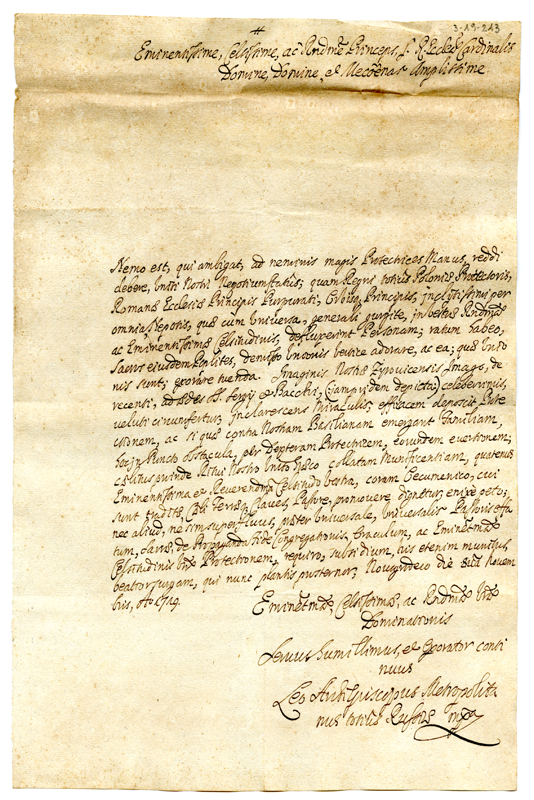 3-19-213
Eminentissime, Celsissime, ac Rndme Princeps, S. R. Eccles Cardinalis
Domine, Domine, et Mecoenas Amplissime
Nemo est, qui ambigat, ad neminis magis Protectrices Manus, reddi
debere, Uniti Nostri Nepotium
quam Regni totius Poloniae Protectoris,
Romanae Ecclesiae Principis Purpurati, Principis, inclytissimi per
omnia Nepotis, quae cum Universa, generali gurgite, in
ac Eminentissimae Celsitudinis, Personam; ratum habeo,
Sacros eiusdem Poplites, adorare, ac ea, quae Unio
nis sunt, exorare tuenda. Imaginis Nostrae Zyrovicensis Imago, de
recenti, ad Aedes SS. Sergii et Bacchi, (iampridem depicta) celeberrimis,
veluti circumfertur, inclarescens Miraculis, efficacem deposcit Prote
ctionem, ac si quae contra Nostram Basilianam emergant Familiam,
hoc in Puncto obstacula, per Protectricem, eorundem eversionem,
Ritui Nostro Unito collatam Munificentiam, quatenus
Eminentissima et Reverendma Celsitudo Vestra, coram Oecumenico, cui
sunt traditae, Caeli Terris, Claves, Pastore, promovere dignetur, enixe peto;
nec aliud, ne sim superfluus, praeter Universale, Universalis Pastoris effa
tum, Sacrae de Propaganda Fide Congregationis, Oraculum, ac Eminetmae
Celsitudinis Vrae Protectionem, requiro, subsidium, his etenim munitus,
beatior surgam, qui nunc plantis prosternor; die Novem
bris, 1719.
Eminetmae, Celsissimae, ac Rndmae Vrae
Dominationis
Servus humillimus, et Exorator conti
nuus
Leo Archi Episcopus Metropolita
nus totius Russiae mpp